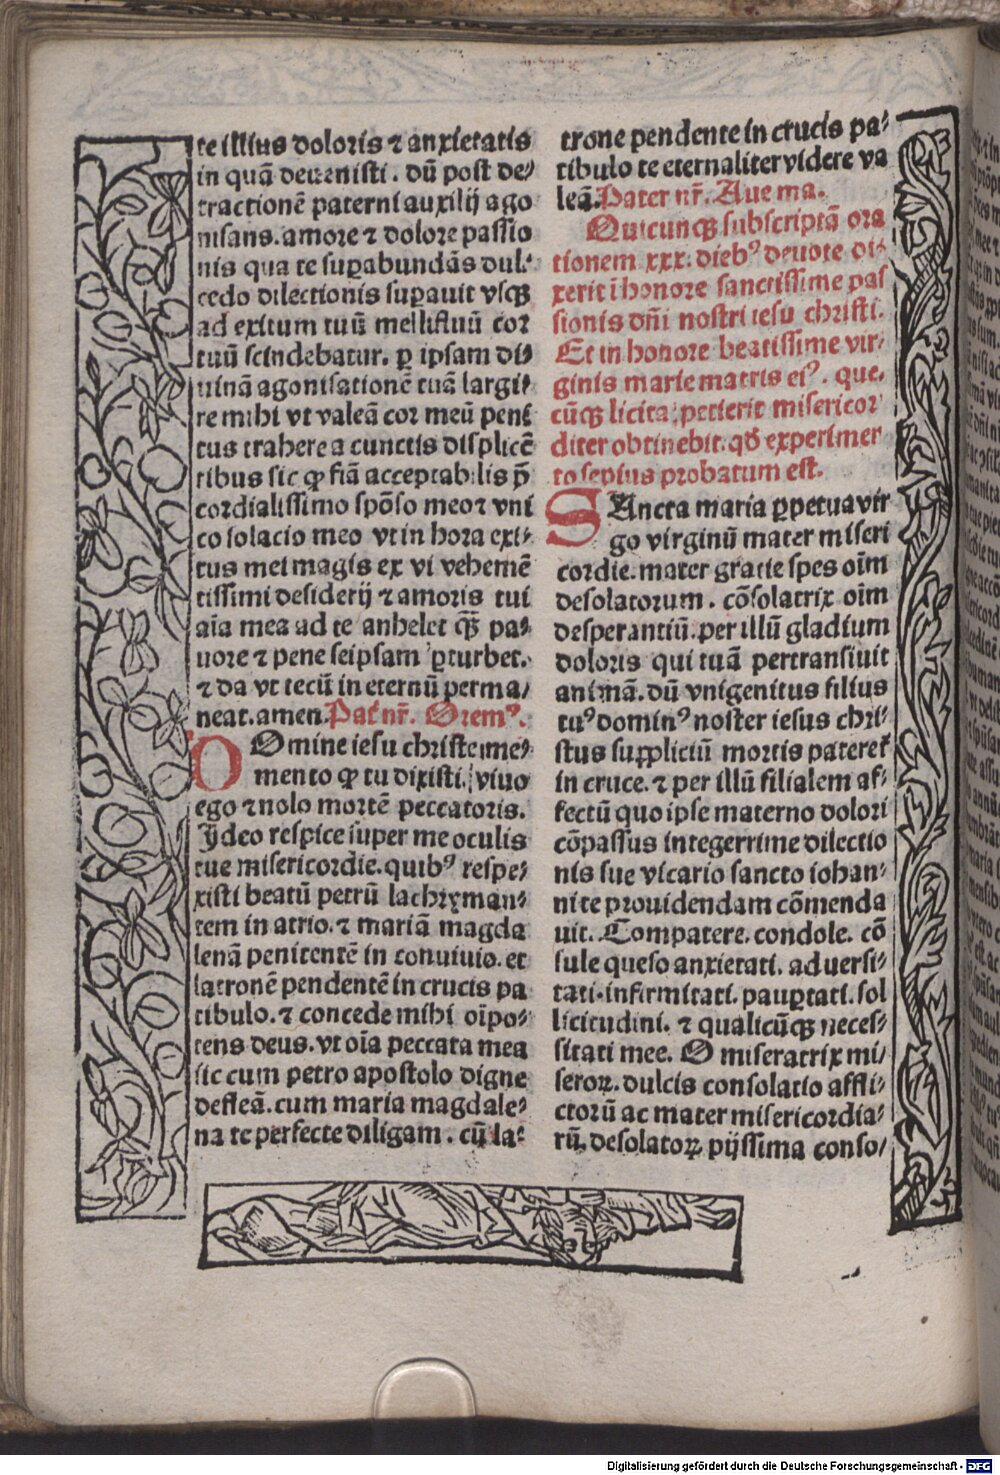 te illius doloris ⁊ anxietatis
in quā deuenisti. dū post de⸗
tractionē paterni auxilij ago
nisans. amore ⁊ dolore passio
nis qua te suꝑabundās dul⸗
cedo dilectionis suꝑauit vsqꝫ
ad exitum tuū mellifluū cor
tuū scindebatur. ꝑ ipsam di⸗
uinā agonisationē tuā largi⸗
re mihi vt valeā cor meū peni
tus trahere a cunctis displicē
tibus sic ꝙ fiā acceptabilis p̄
cordialissimo spōso meo ⁊ vni
co solacio meo vt in hora exi⸗
tus mei magis ex vi vehemē
tissimi desiderij ⁊ amoris tui
aīa mea ad te anhelet qꝫ̄ pa⸗
uore ⁊ pene seipsam ꝑturbet.
⁊ da vt tecū in eternū perma/
neat. amen. Pat̄ nr̄. Oremꝰ.
DOmine iesu christe me⸗
mento ꝙ tu dixisti. viuo
ego ⁊ nolo mortē peccatoris.
Ideo respice super me oculis
tue misericordie. quibꝰ respe⸗
xisti beatū petrū lachryman⸗
tem in atrio. ⁊ mariā magda
lenā penitentē in conuiuio. et
latronē pendentē in crucis pa
tibulo. ⁊ concede mihi oīpo⸗
tens deus. vt oīa peccata mea
sic cum petro apostolo digne
defleā. cum maria magdale⸗
na te perfecte diligam. cū la⸗
trone pendente in crucis pa⸗
tibulo te eternaliter videre va
leā. Pater nr̄. Aue ma.
Quicunqꝫ subscriptā ora
tionem xxx. diebꝰ deuote di⸗
xerit ī honore sanctissime pas
sionis dn̄i nostri iesu christi.
Et in honore beatissime vir⸗
ginis marie matris eiꝰ. que⸗
cūqꝫ licita petierit misericor
diter obtinebit. qd̄ experimen
to sepius probatum est.
SAncta maria ꝑpetua vir
go virginū mater miseri
cordie. mater gracie spes oīm
desolatorum. cōsolatrix oīm
desperantiū. per illū gladium
doloris qui tuā pertransiuit
animā. dū vnigenitus filius
tuꝰ dominꝰ noster iesus chri⸗
stus suppliciū mortis pateret̄
in cruce. ⁊ per illū filialem af⸗
fectū quo ipse materno dolori
cōpassus integerrime dilectio
nis sue vicario sancto iohan⸗
ni te prouidendam cōmenda
uit. Compatere. condole. cō
sule queso anxietati. aduersi⸗
tati. infirmitati. pauꝑtati. sol
licitudini. ⁊ qualicūqꝫ neces⸗
sitati mee. O miseratrix mi/
seroꝝ. dulcis consolatio affli⸗
ctorū ac mater misericordia⸗
rū. desolatoꝝ pijssima conso/
Digitalisierung gefördert durch die Deutsche Forschungsgemeinschaft - DFG